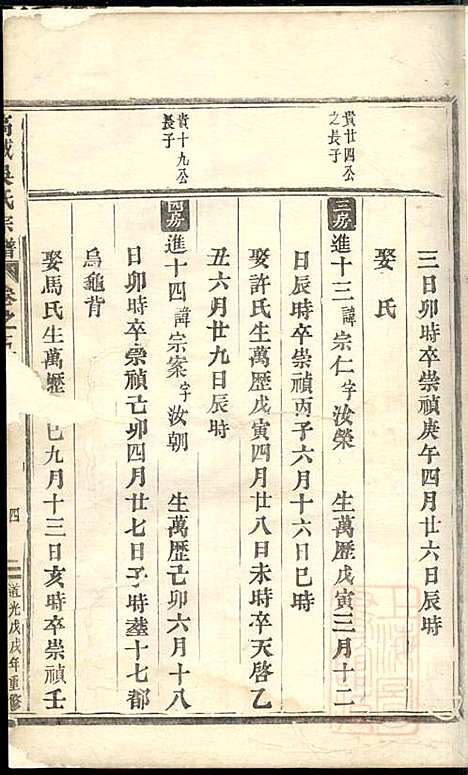 三日卯時卒崇禎庚午四月廿六日辰時
娶 氏
貴廿四公
之長子
三房進十三諱宗仁字汝榮 生萬歷戊寅三月十二
日辰時卒崇禎丙子六月十六日巳時
娶許氏生萬歷戊寅四月廿八日未時卒天啓乙
丑六月廿九日辰時
貴十九公
長子
四房進十四諱宗案字汝朝 生萬歷己卯六月十八
日卯時卒崇禎己卯四月廿七日子時塟十七都
烏龜背
娶馬氏生萬歷 巳九月十三日亥時卒崇禎壬
吳氏宗譜 卷之
四
道光戊戌年重修